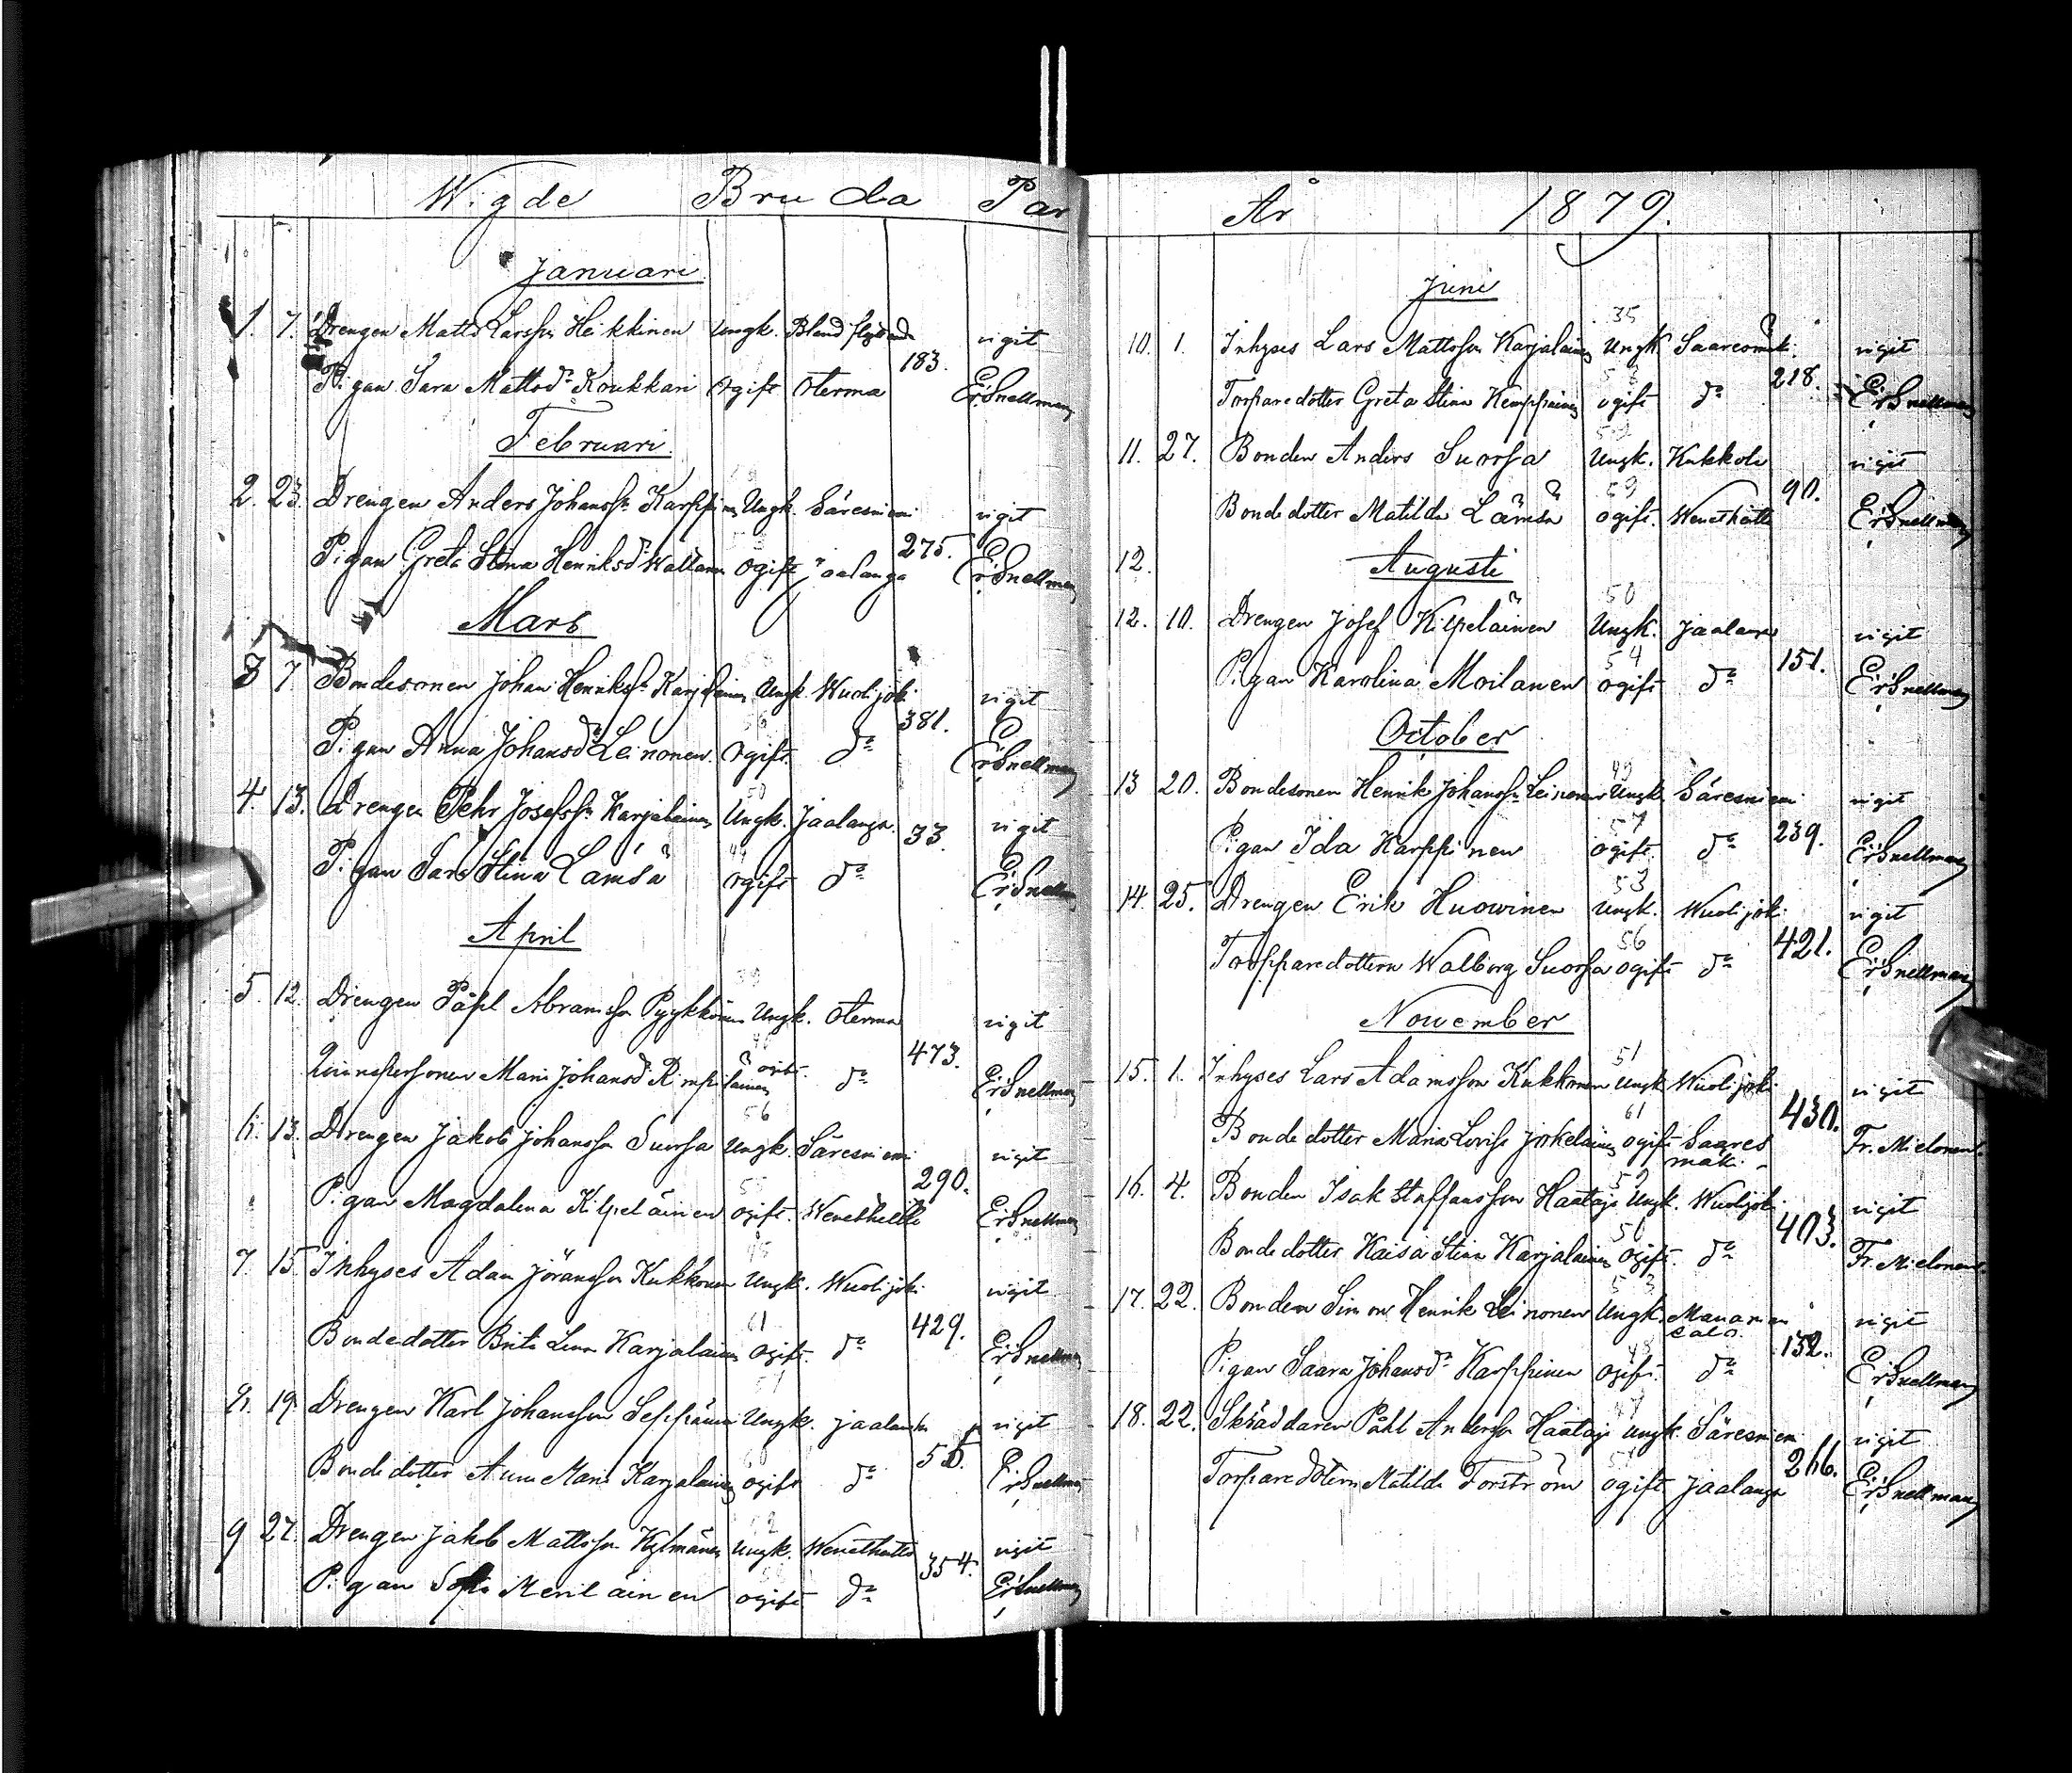 Wigde Bruda Par
Januari
1. 7. Drengen Matts Larsson Heikkinen Ungk. Bland flyttande vigit
183.
Pigan Sara Mattsdr Koukkari Ogift Oterma Er. Snellman
Februari
2. 23. Drengen Anders Johanss. Karppinen Ungk. Säresniemi vigit
275.
Pigan Greta Stina Henriksdr Ogift Jaalanga Er. Snellman
Mars
3 7 Bondesonen Johan Henrikss. Karjalainen Ungk. Wuolijoki vigit
381.
Pigan Anna Johansdr Leinonen Ogift do Er. Snellman
4. 13. Drengen Pehr Josefss. Karjalainen Ungk. Jaalanga 33. vigit
50
49
Pigan Sara Stina Lämsä Ogift do Er. Snellman
April
5. 12. Drengen Påhl Abramsson Pyykkönen Ungk. Oterma vigit
473.
Qvinspersonen Maria Johansdr Rimpiläinen ogift. do Er. Snellman
56
6. 13. Drengen Jakob Johansson Suorsa Ungk. Säresniemi vigit
290.
Pigan Magdalena Kilpeläinen Ogift. Wenetheitto Er. Snellman
7. 15. Inhyses Adam Jöransson Kukkonen Ungk. Wuolijoki vigit
61 429.
Bondedotter Brita Lena Karjalainen Ogift. do Er. Snellman
8. 19. Drengen Karl Johansson Seppänen Ungk. Jaalanka vigit
55.
Bondedotter Anna Maria Karjalainen Ogift do Er. Snellman
9 27. Drengen Jakob Mattsson Kylmänen Ungk. Wenetheitto vigit
354.
Pigan Sofia Meriläinen ogift do Er. Snellman
År 1879.
Juni
35
10. 1. Inhyses Lars Mattsson Karjalainen Ungk Saaresmäki vigit
218.
Torpare dotter Greta Stina Kemppainen ogift do Er. Snellman
11. 27. Bonden Anders Suorsa Ungk. Kukkola vigit
59 90.
Bondedotter Matilda Lämsä ogift. Wenetheitto Er. Snellman
12. Augusti
50
12. 10. Drengen Josef Kilpeläinen Ungk. Jaalanga vigit
54 151.
Pigan Karolina Moilanen ogift do Er. Snellman
October
49
13 20. Bondesonen Henrik Johanss. Leinonen Ungk. Säresniemi vigit
57 239.
Pigan Ida Karppinen ogift. do Er. Snellman
53
14. 25. Drengen Erik Huowinen Ungk. Wuolijoki vigit
56 421.
Torpparedottern Walborg Suorsa ogift do Er. Snellman
November
51
15. 1. Inhyses Lars Adamsson Kukkonen Ungk Wuolijoki vigit
61 430.
Bondedotter Maria Lovisa Jokelainen ogift Saares Fr. Mielonen
mäki
16. 4. Bonden Isak Staffansson Haataja Ungk. Wuolijoki vigit
56 403.
Bondedotter Kaisa Stina Karjalainen Ogift. do Fr. Mielonen
53
17. 22. Bonden Simon Henrik Leinonen Ungk. Manamansalo vigit
132.
Pigan Saara Johansdr Karppinen ogift. do Er. Snellman
47
18. 22. Skräddaren Påhl Andersson Haataja Ungk. Säresniemi vigit
266.
Torparedottern Matilda Forström ogift Jaalanga Er. Snellman